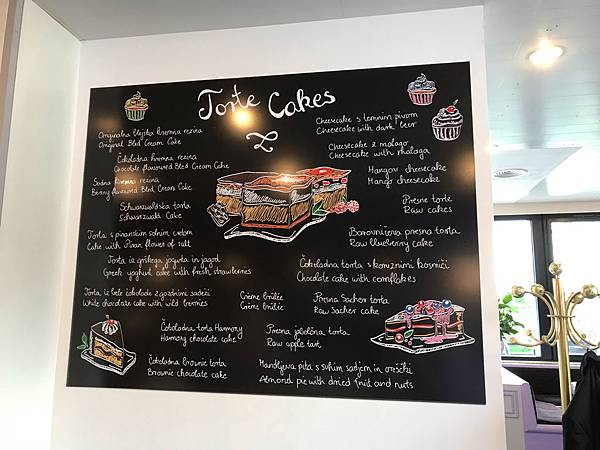 Torte Cakes
Originalna blejska kremna rezina
Original Bled Cream Cake
Čokoladna kremna rezina
Chocolate flavoured Bled Cream Cake
Sadna kremna rezina
Berry flavoured Bled Cream Cake
Schwarzwaldska torta
Schwarzwald Cake
Torta s piranskim solnim cvetom
Cake with Piran flower of salt
Torta iz grškega jogurta in jagod
Greek yoghurt cake with fresh strawberries
Torta iz bele čokolade z gozdnimi sadeži
White chocolate cake with wild berries
Čokoladna torta Harmony
Harmony chocolate cake
Čokoladna brownie torta
Brownie chocolate cake
Crème brûlée
Crème brûlée
Cheesecake s temnim pivom
Cheesecake with dark beer
Cheesecake z malago
Cheesecake with malaga
Mangov cheesecake
Mango cheesecake
Presne torte
Raw cakes
Borovničeva presna torta
Raw blueberry cake
Čokoladna torta s koruznimi kosmiči
Chocolate cake with cornflakes
Presna Sacher torta
Raw sacher cake
Presna jabolčna torta
Raw apple tart
Mandljeva pita s suhim sadjem in oreščki
Almond pie with dried fruit and nuts